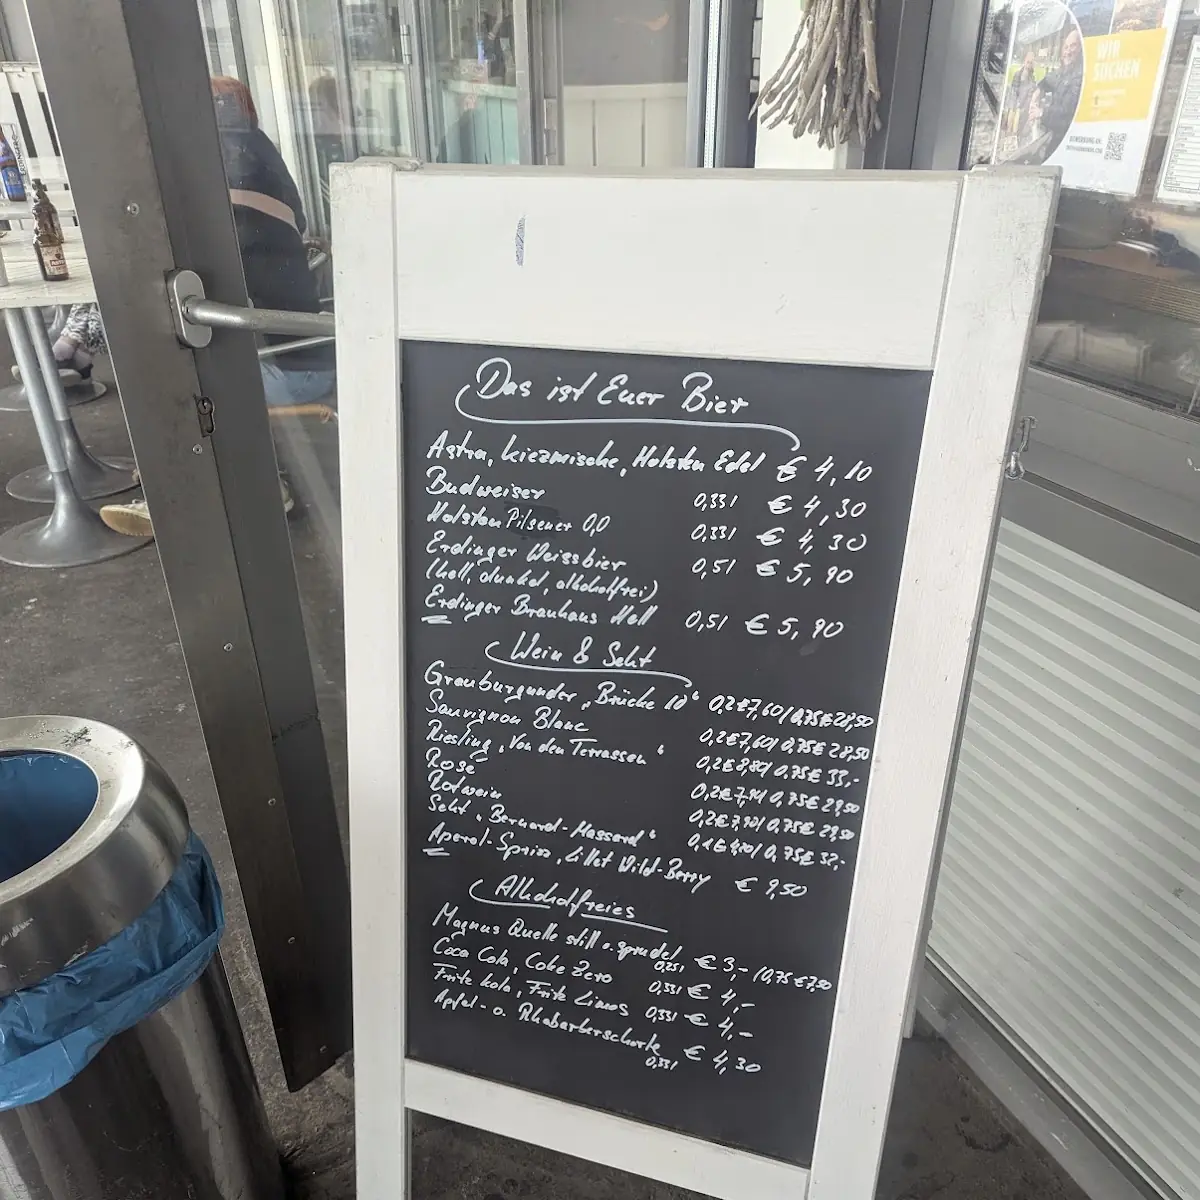 WIR
SUCHEN
Das ist Euer Bier
Astra, Kiezmische, Holsten Edel € 4,10
Budweiser 0,33l € 4,30
Holsten Pilsener 0,0 0,33l € 4,30
Erdinger Weissbier 0,5l € 5,90
(hell, dunkel, alkoholfrei)
Erdinger Brauhaus Hell 0,5l € 5,90
Wein & Sekt
Grauburgunder „Brücke 10“ 0,2€7,60/0,75€28,50
Sauvignon Blanc 0,2€7,60/0,75€28,50
Riesling „Von den Terrassen“ 0,2€8,80/0,75€ 33,-
Rosé 0,2€7,90/0,75€29,50
Rotwein 0,2€7,90/0,75€29,50
Sekt „Bernard-Massard“ 0,75€ 32,-
Aperol-Spritz, Lillet Wild-Berry € 9,50
Alkoholfreies
Magnus Quelle still o. sprudel 0,25l € 3,- /0,75 €7,50
Coca Cola, Coke Zero 0,33l € 4,-
Fritz Kola, Fritz Limos 0,33l € 4,-
Apfel- o. Rhabarberschorle 0,33l € 4,30